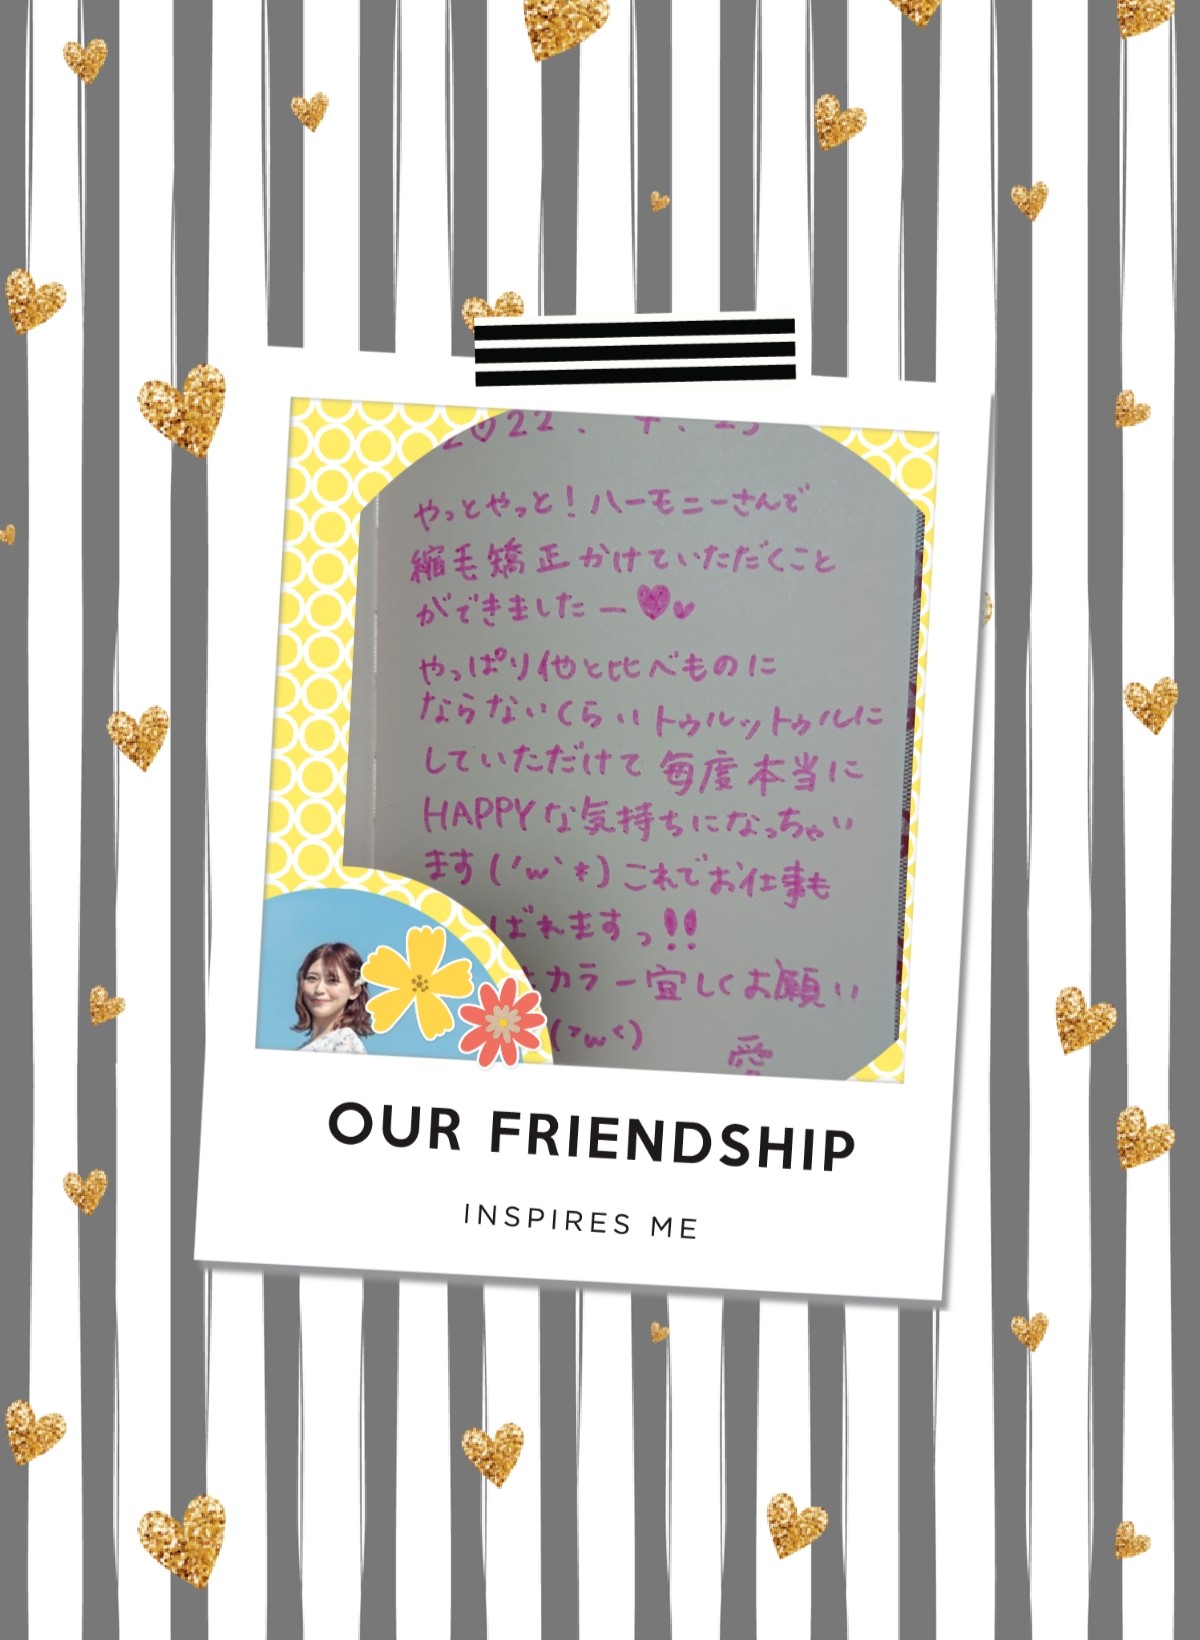 2022.
やっとやっと！ハーモニーさんで
縮毛矯正かけていただくこと
ができましたー♥♥
やっぱり他と比べものに
ならないくらいトゥルットゥルに
していただけて毎度本当に
HAPPYな気持ちになっちゃい
ます('ω`*)これでお仕事も
ばれますっ!!
カラー宜しくお願い
愛
OUR FRIENDSHIP
INSPIRES ME